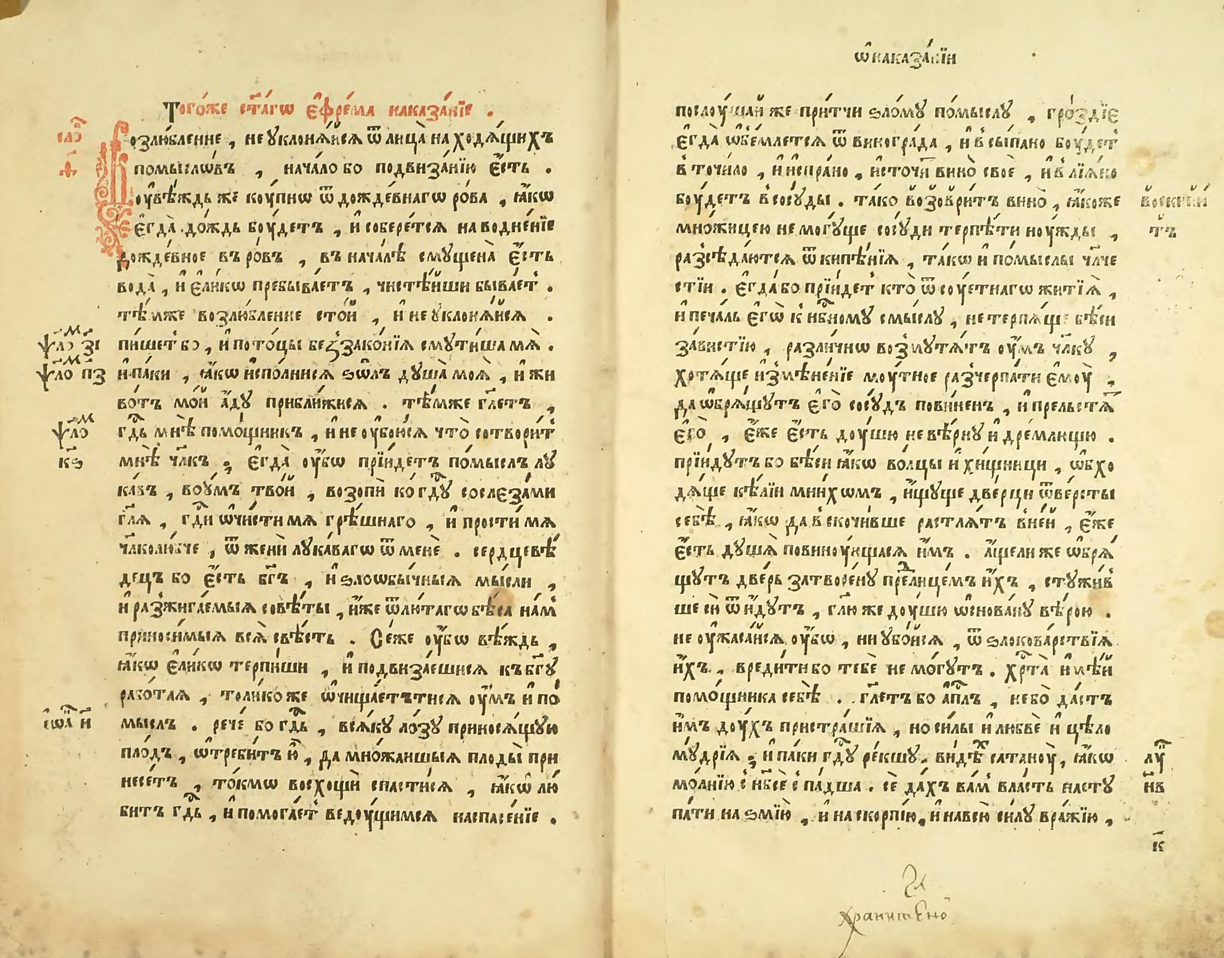 Тогоже ст҃агѡ є҆фре́ма наказа́нїе .
сло
озлю́бленне , не ᲂу҆клонѧ́йсѧ ѿ лица̀ находѧ́щихъ
помысло́въ , нача́ло бо подвиза́нїю є҆́сть .
ᲂу҆вѣ́ждь же ко́упнѡ ѿ дожде́внагѡ ро́ва , ꙗ҆́кѡ
є҆гда̀ до́ждь бꙋ́детъ , и҆ собере́тсѧ наводне́нїе
дожде́вное въ ро́въ , въ нача́лѣ смꙋще́на є҆́сть
вода̀ , и҆ є҆ли́кѡ пребыва́етъ , чистѣ́йши быва́ет .
тѣ́мже возлю́бленне сто́й , и҆ не ᲂу҆клонѧ́йсѧ .
ѱало́м з҃і
пи́шет бо , и҆ пото́цы беззако́нїѧ смꙋти́ша мѧ̀ .
ѱало́м п҃з
и҆ па́ки , ꙗ҆́кѡ и҆спо́лнисѧ ѕѡ́лъ дꙋша̀ моѧ̀ , и҆ жи
во́тъ мо́й а҆́дꙋ прибли́жисѧ . тѣ́мже гл҃етъ ,
ѱало́м
гд҇ь мнѣ̀ помо́щникъ , и҆ не ᲂу҆бою́сѧ что̀ сотвори́т
к҃ѕ
мнѣ̀ чл҃къ ; є҆гда̀ ᲂу҆́бѡ прїи́детъ по́мыслъ лꙋ
ка́въ , во ᲂу҆́мъ тво́й , возопі́й ко гд҇ꙋ со слеза́ми
гл҃ѧ , гд҇и ѡ҆чи́сти мѧ̀ грѣ́шнаго , и҆ прости́ мѧ
чл҃колю́бче , ѿженѝ лꙋка́вагѡ ѿ менѐ . сердцевѣ́
децъ бо є҆́сть бг҃ъ , и҆ ѕлоѡбы́чныѧ мы́сли ,
и҆ разжига́емыѧ совѣ́ты , и҆̀же ѿ лю́тагѡ бѣ́са на́м
приноси́мыѧ всѧ̀ свѣ́сть . Се́же ᲂу҆́бѡ вѣ́ждь ,
ꙗ҆́кѡ є҆ли́кѡ терпи́ши , и҆ подвиза́ешисѧ къ бг҃ꙋ
рабо́таѧ , толи́ко же ѡ҆чища́етътисѧ ᲂу҆́мъ и҆ по́
і҆ѡа́н
мыслъ . рече́ бо гд҇ь , всѧ́кꙋ ло́зꙋ приносѧ́щꙋю
пло́дъ , ѡ҆треби́тъ ю҆̀ , да мно́жаишыѧ плоды̀ при
несе́тъ , то́кмѡ восхощѝ спасти́сѧ , ꙗ҆́кѡ лю́
битъ гд҇ь , и҆ помога́ет ведо́ущимсѧ на спасе́нїе .
ѡ҆ наказа́нїи
послоу́шай же при́тчи ѕло́мꙋ по́мыслꙋ , гро́здїе
є҆гда̀ ѡ҆б̾е́млетсѧ ѿ виногра́да , и҆ всы́пано бо́удет
в точи́ло , и҆ и҆спра́но , и҆сточи́ вино̀ своѐ , и҆ влїѧ́но
бо́удетъ в сосꙋ́ды . та́ко возоври́тъ вино̀ , ꙗ҆́коже
мно́жицею не могꙋ́ще сосꙋ́ди терпѣ́ти ноу́жды ,
разсѣда́ютсѧ ѿ кипѣ́нїѧ , та́кѡ и҆ по́мыслы чл҃че
стїи . є҆гда́ бо прїи́детъ кто̀ ѿ соу́етнагѡ житїѧ̀ ,
и҆ печа́ль є҆гѡ̀ к нб҇номꙋ смы́слꙋ , не терпѧ́ще бѣ́си
за́вистїю , разли́чнѡ возмꙋтѧ́тъ ᲂу҆́мъ чл҃кꙋ ,
хотѧ́ще и҆змѣне́нїе моу́тное разчерпа́ти є҆моу̀ ,
да ѡ҆брѧ́щꙋтъ є҆го̀ сосꙋ́дъ пови́ненъ , и҆ прельстѧ́т
є҆го̀ , є҆́же є҆́сть доу́шю невѣ́рнꙋ и҆ дре́млющю .
прїи́дꙋтъ бо бѣ́си ꙗ҆́кѡ во́лцы и҆ хи́щницы , ѡ҆бхо
дѧ́ще кѣ́лїи мни́хѡмъ , и҆́щꙋще две́рци ѿве́рсты
себѣ̀ , ꙗ҆́кѡ да вскочи́вше растлѧ́тъ в не́й , є҆́же
є҆́сть дꙋшѧ̀ повиноу́ющаѧсѧ и҆́мъ . а҆́щели же ѡ҆брѧ́
щꙋтъ две́рь затворе́нꙋ пред лице́мъ и҆́хъ , стꙋжи́в
ше сѝ ѿи́дꙋтъ , гл҃ю же доу́шю ѡ҆снова́нꙋ вѣ́рою .
не ᲂу҆жаса́йсѧ ᲂу҆́бѡ , ни ᲂу҆бо́йсѧ , ѿ ѕлокова́рствїѧ
и҆́хъ , вреди́ти бо тебѐ не мо́гꙋтъ . хр҇та̀ и҆мѣ́й
помо́щника себѣ̀ . гл҃етъ бо а҆пл҇ъ , не бо̀ да́стъ
и҆́мъ до́ухъ пристра́шїѧ , но си́лы и҆ любвѐ и҆ цѣло
мꙋ́дрїѧ ; и҆ па́ки гд҇ꙋ ре́кшꙋ . ви́дѣх сатаноу̀ , ꙗ҆́кѡ
лꙋ
мо́лнїю с нб҃сѐ спа́дша . сѐ да́хъ ва́м вла́сть настꙋ
н҃в
па́ти на ѕмїю̀ , и҆ на скорпі́ю , и҆ на всю̀ си́лꙋ вра́жїю ,
к҃